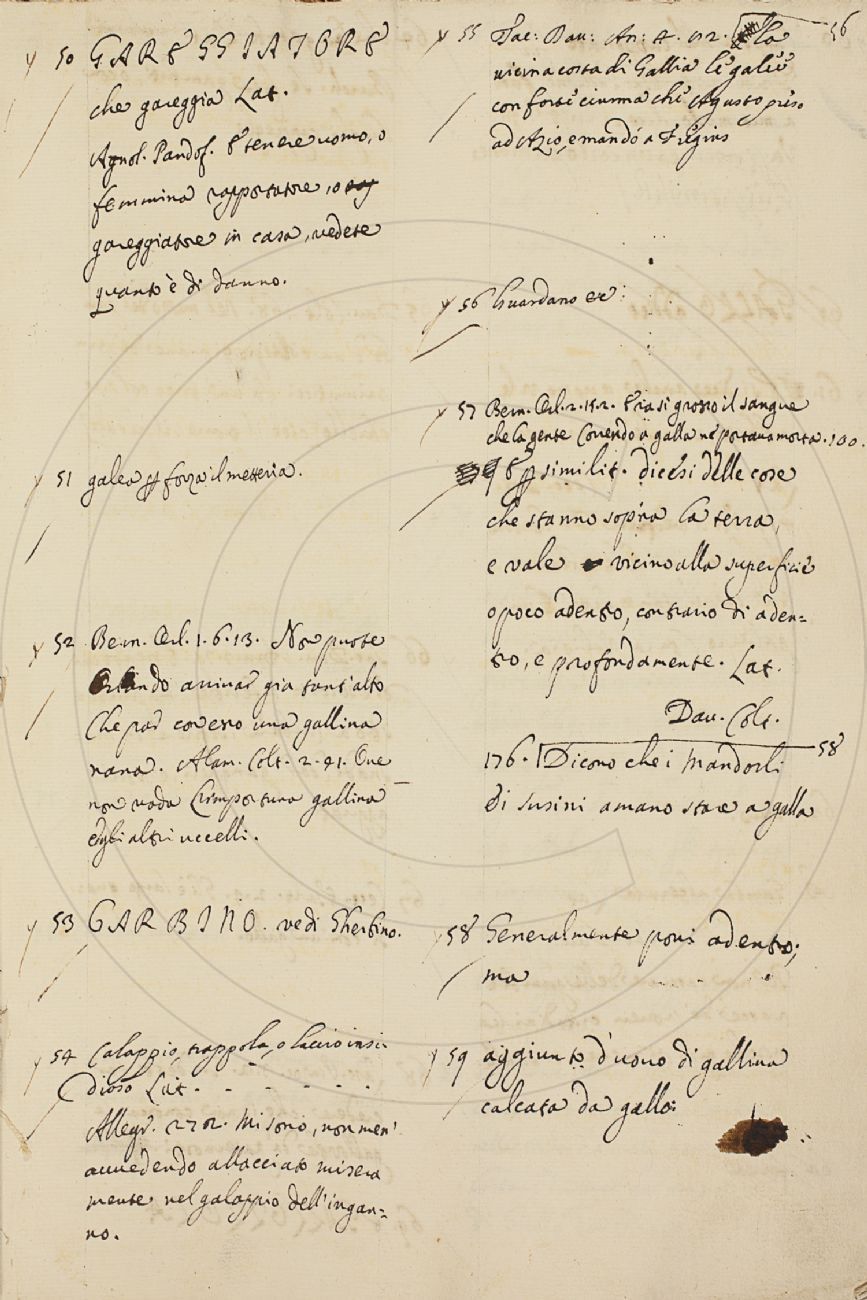 50 GAREGGIATORE
che gareggia Lat.
Agnol. Pandof. E tenere uomo, o
femmina rapportatore, o
gareggiatore in casa, vedete
quanto è di danno.
51 galea forza il metteria.
52 Bern. Orl. 1. 6. 13. Non puote
Orlando arrivar gia tant'alto
Che par coverto una gallina
nana. Alam. Colt. 2. 41. Ove
non vada l'importuna gallina
e gli altri uccelli.
53 GARBINO. vedi Gherbino.
54 Calappio, trappola, o laccio insi-
dioso Lat. - - - - - -
Allegr. 272. Mi sono, non men'
avvedendo allacciato misera
mente nel galappio dell'ingan=
no.
55 Tac: Dav: An: 4. 92. la 56
vicina costa di Gallia le galee
con forte ciurma che Agusto prese
ad Azio, e mandò a Fregius
56 Guardano ec:
57 Bern. Orl. 2. 15. 2. Eria si grosso il sangue
che la gente Correndo a galla ne portava morta. 100.
E similit. dicesi delle cose
che stanno sopra la terra,
e vale vicino alla superficie
o poco adento, contrario di aden=
to, e profondamente. Lat.
Dav. Colt.
176. Dicono che i Mandorli 58
di susini amano stare a galla
58 Generalmente poni adento;
ma
59 aggiunto d'uovo di gallina
calcata da gallo: